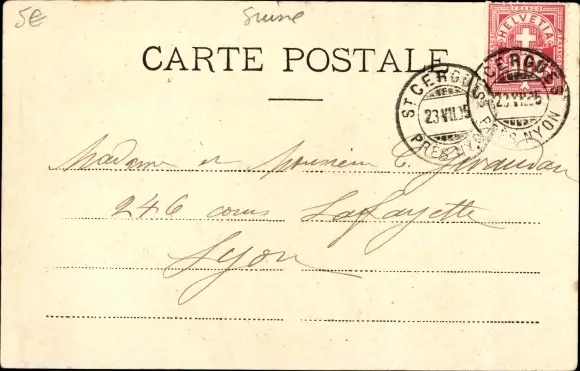 5€
Suisse
CARTE POSTALE
FRANCO
HELVETIA
ST CERGUES
23 VII 05
PRÈS NYON
ST CERGUES
23 VII 05
PRÈS NYON
Madame et Monsieur C. Giraudan
246 cours Lafayette
Lyon